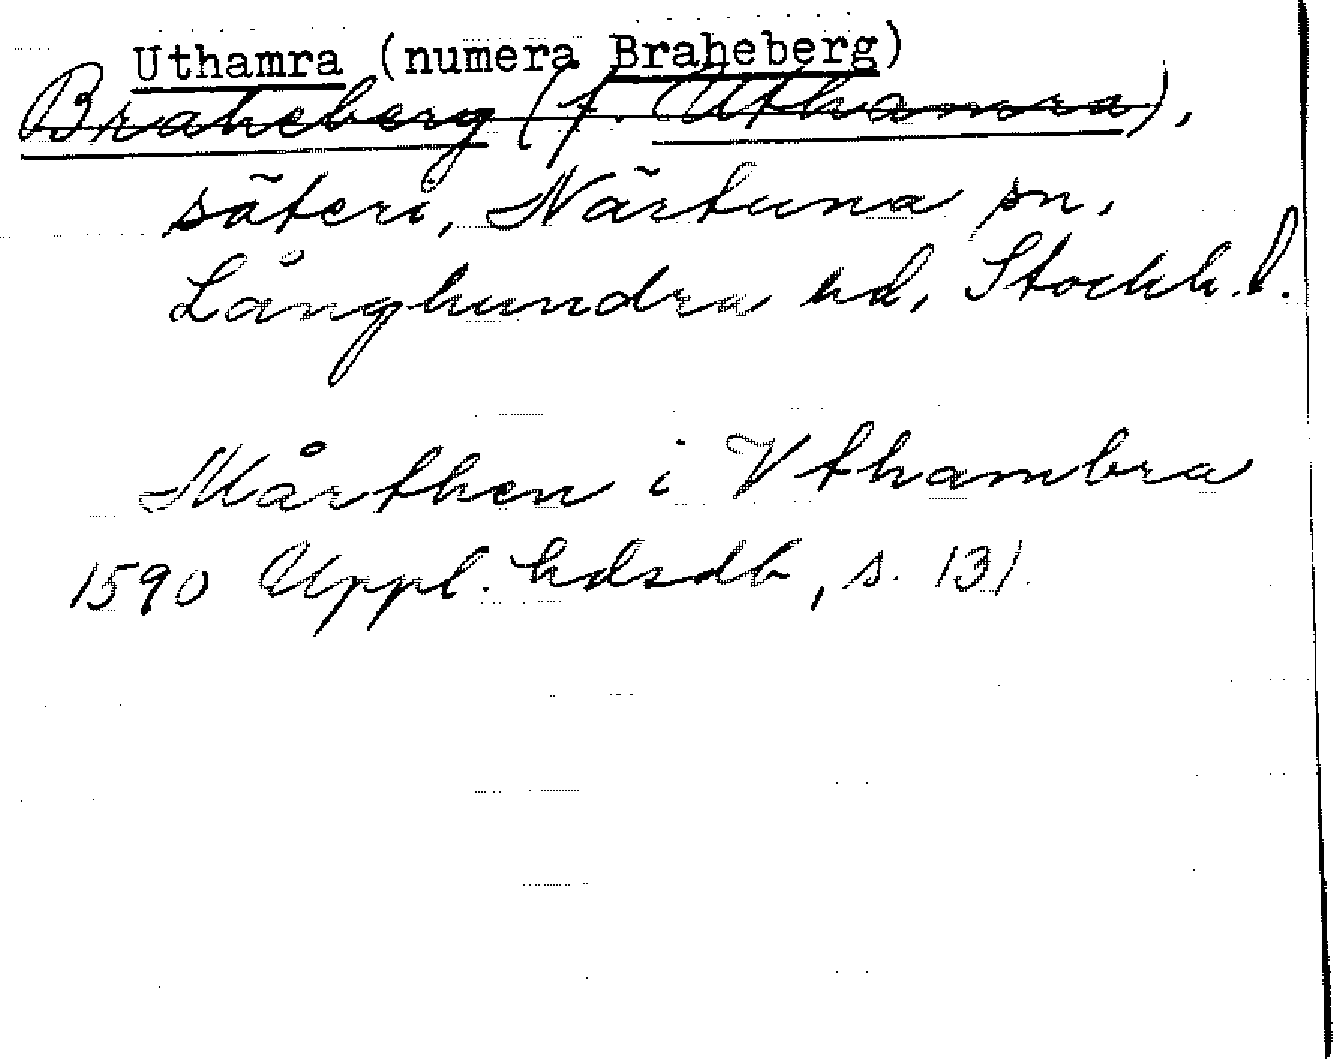 Uthamra (numera Braheberg)
Braheberg (f. Uthamra),
säteri, Närtuna sn,
Långhundra hd, Stockh. l.
Mårthen i Vthambra
1590 Uppl. hdsdb, s. 131.